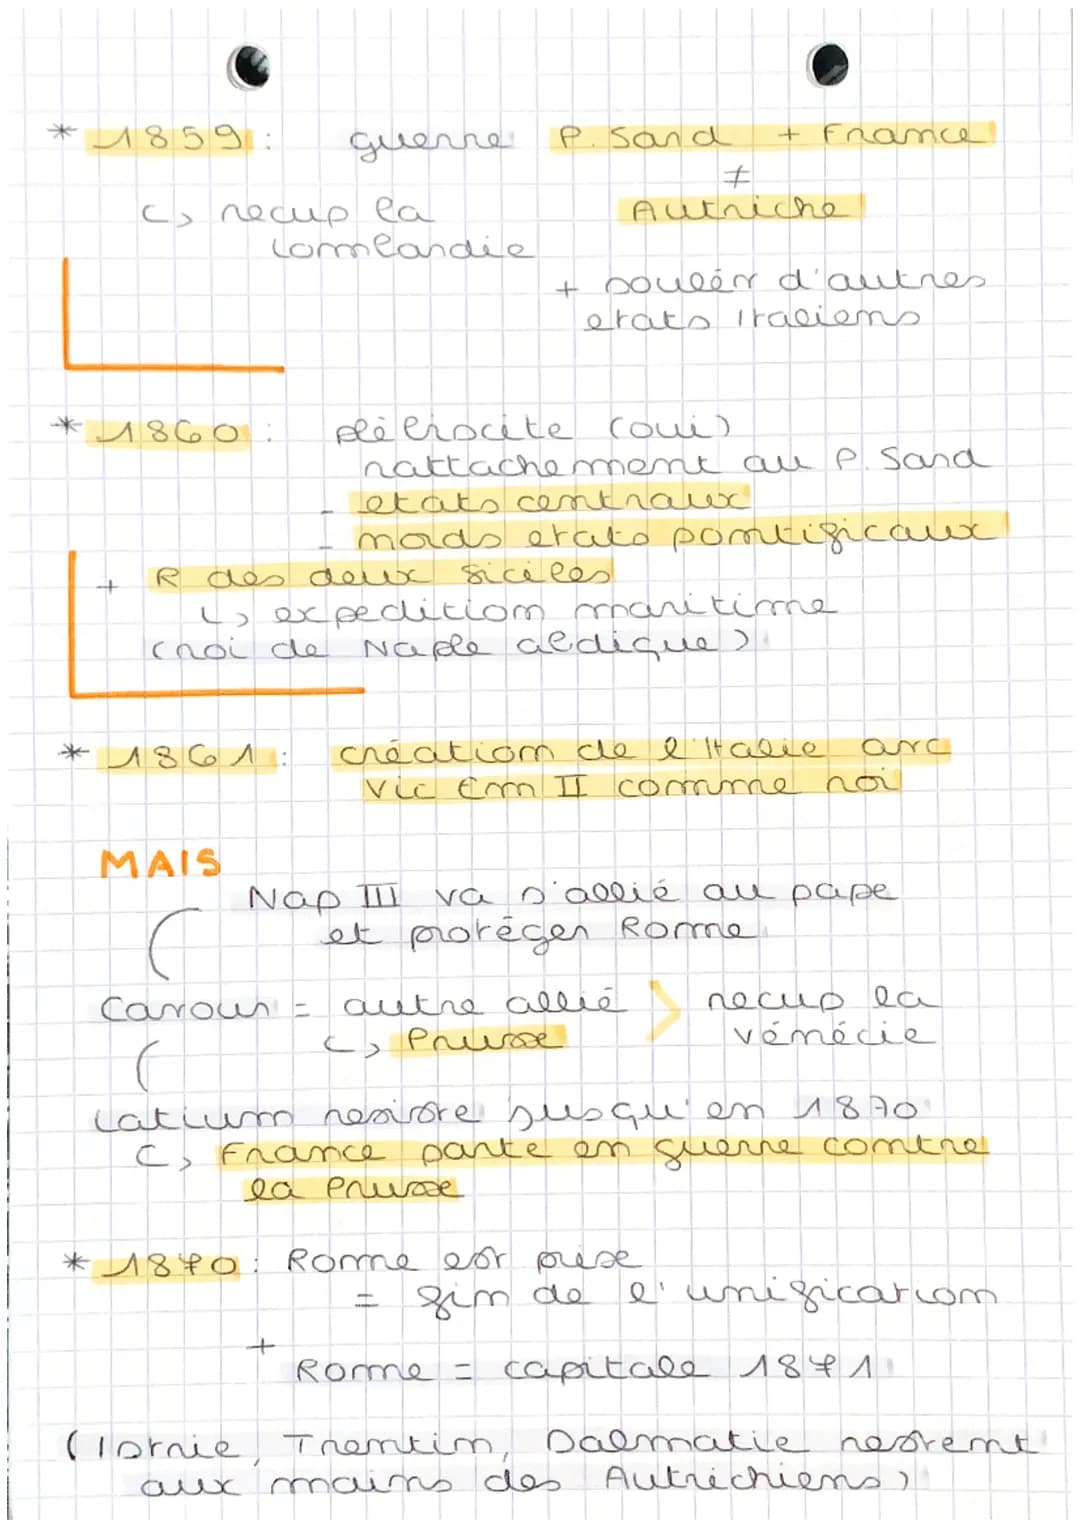 * 1859 : guerre P. Sard + France
≠
Autriche
↳ recup la
Lombardie
+ soulèv d'autres
etats Italiens
* 1860 : plébiscite (oui)
rattachement au P. Sard
- etats centraux
- mords etats pontificaux
+ R des deux siciles
↳ expedition maritime
(roi de Naple abdique)
* 1861 : création de l'Italie avc
Vic Em II comme roi
MAIS
Nap III va s'allié au pape
et protéger Rome
Cavour = autre allié > recup la
↳ Prusse vénécie
Latium resiste jusqu'en 1870
↳ France parte en guerre contre
la Prusse
* 1870 : Rome est prise
= fin de l'unification
+
Rome = capitale 1871
(Istrie, Trentin, Dalmatie restent
aux mains des Autrichiens)